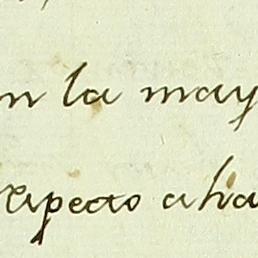 n la may
respecto aha